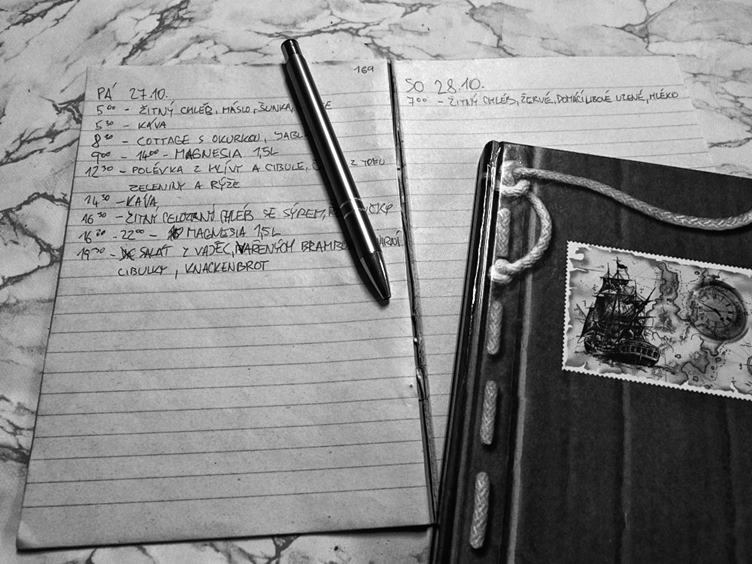 169
PÁ 27.10.
5⁰⁰ - ŽITNÝ CHLÉB, MÁSLO, ŠUNKA,
5³⁰ - KÁVA
8³⁰ - COTTAGE S OKURKOU,
9⁰⁰ - 14⁰⁰ - MAGNESIA 1,5L
12³⁰ - POLÉVKA Z HLÍVY A CIBULE,
ZELENINY A RÝŽE
14³⁰ - KÁVA
16³⁰ - ŽITNÝ CELOZRNÝ CHLÉB SE SÝREM,
16³⁰ - 22⁰⁰ - MAGNESIA 1,5L
19³⁰ - SALÁT Z VAJEC, VAŘENÝCH
CIBULKY, KNACKENBROT
SO 28.10.
7⁰⁰ - ŽITNÝ CHLÉB, ŽERVÉ, DOMÁCÍ LIBOVÉ UZENÉ, MLÉKO